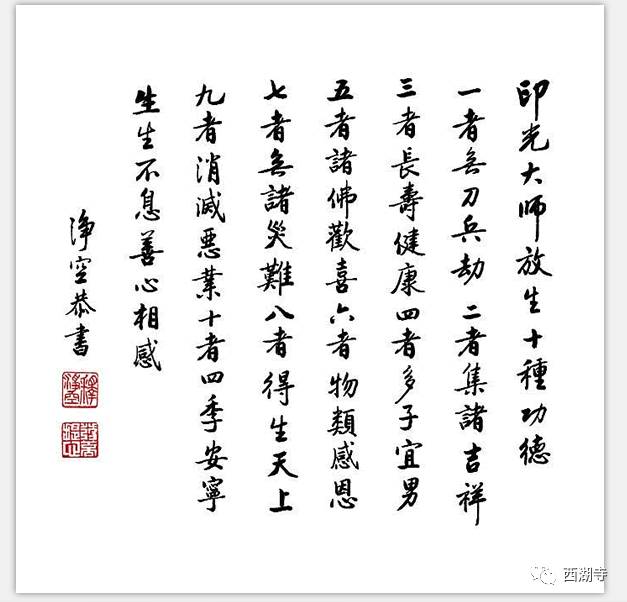 印光大师放生十種功德
一者無刀兵劫二者集諸吉祥
三者長壽健康四者多子宜男
五者諸佛歡喜六者物類感恩
七者無諸災難八者得生天上
九者消滅惡業十者四季安寧
生生不息善心相感
淨空恭書
西湖寺